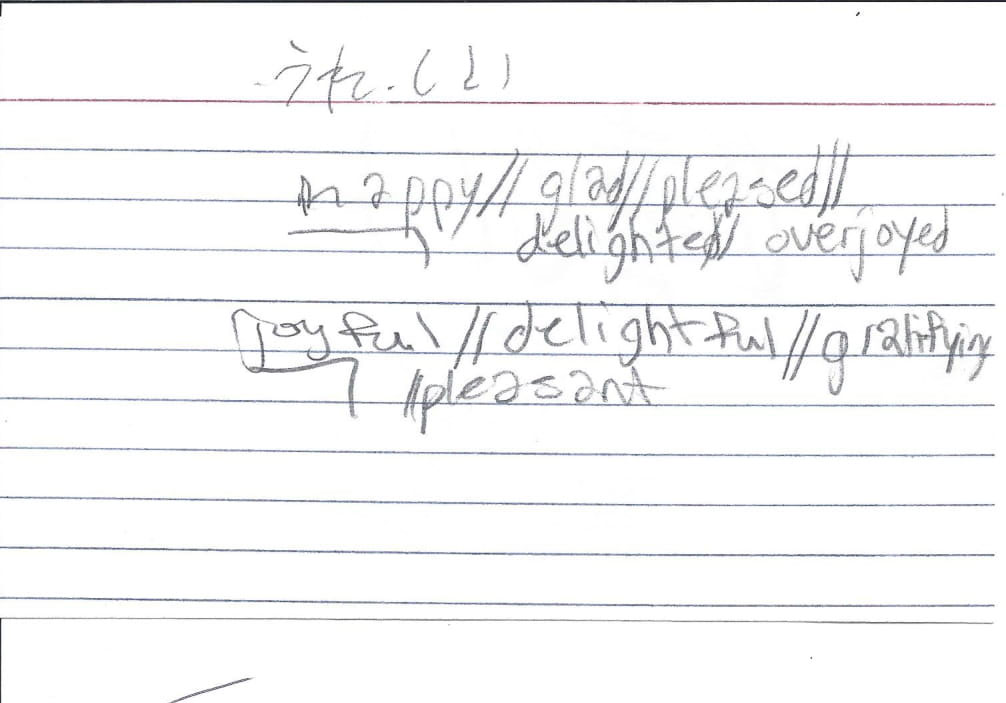 うれ.(し)
happy// glad// pleased//
delighted// overjoyed
joyful // delightful // gratifying
//pleasant